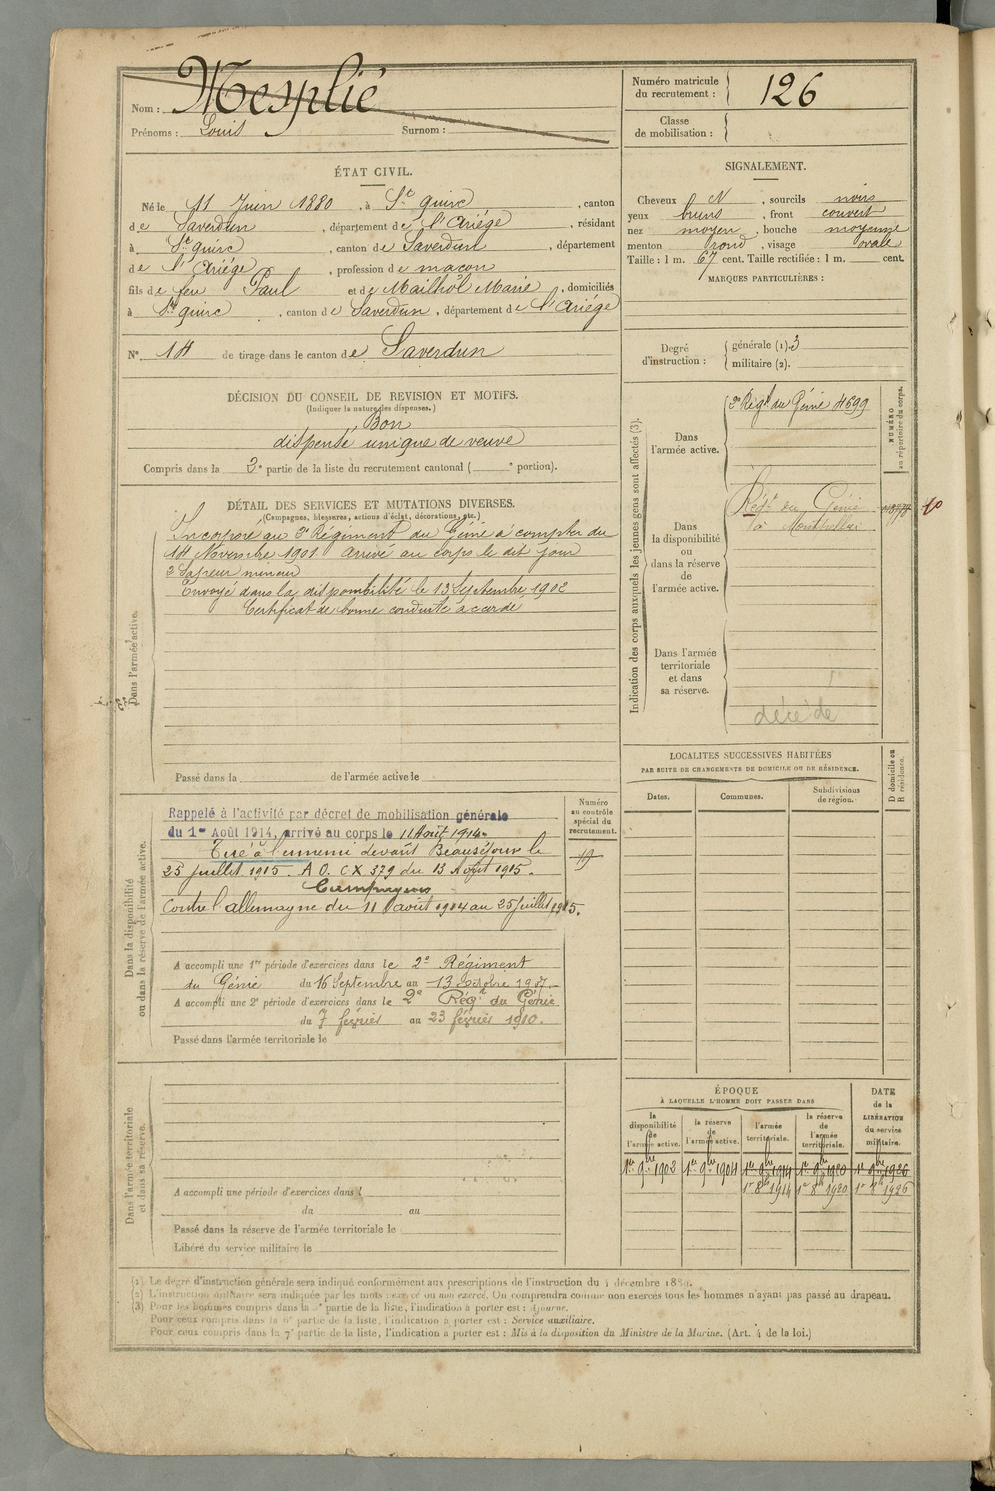 Nom : Mesplié
Prénoms : Louis Surnom :
Numéro matricule du recrutement : 126
Classe de mobilisation :
ÉTAT CIVIL.
Né le 11 Juin 1880, à St Quirc, canton
de Saverdun, département de l'Ariége, résidant
à St Quirc, canton de Saverdun, département
de l'Ariége, profession de maçon
fils de feu Paul et de Mailhol Marie, domiciliés
à St Quirc, canton de Saverdun, département de l'Ariége
N° 14 de tirage dans le canton de Saverdun
SIGNALEMENT.
Cheveux N, sourcils noirs
yeux bruns, front couvert
nez moyen, bouche moyenne
menton rond, visage ovale
Taille : 1 m. 67 cent. Taille rectifiée : 1 m. cent.
MARQUES PARTICULIÈRES :
Degré d'instruction : générale (1). 3
militaire (2).
DÉCISION DU CONSEIL DE REVISION ET MOTIFS.
(Indiquer la nature des dispenses.)
Bon
dispensé unique de veuve
Compris dans la 2e partie de la liste du recrutement cantonal ( e portion).
DÉTAIL DES SERVICES ET MUTATIONS DIVERSES.
(Campagnes, blessures, actions d'éclat, décorations, etc.)
Dans l'armée active.
Incorporé au 2e Régiment du Génie à compter du
14 Novembre 1901 arrivé au corps le dit jour
2e Sapeur mineur
Envoyé dans la disponibilité le 13 Septembre 1902
Certificat de bonne conduite accordé
Passé dans la de l'armée active le
Indication des corps auxquels les jeunes gens sont affectés (3).
NUMÉRO au répertoire du corps.
Dans l'armée active.
2e Régt du Génie 4699
Dans la disponibilité ou dans la réserve de l'armée active.
Régt du Génie
à Montpellier
10
Dans l'armée territoriale et dans sa réserve.
décédé
LOCALITES SUCCESSIVES HABITÉES
PAR SUITE DE CHANGEMENTS DE DOMICILE OU DE RÉSIDENCE.
D domicile ou R résidence.
Dates. Communes. Subdivisions de région.
Dans la disponibilité ou dans la réserve de l'armée active.
Numéro au contrôle spécial du recrutement.
19
Rappelé à l'activité par décret de mobilisation générale
du 1er Août 1914, arrivé au corps le 11 Août 1914.
Tué à l'ennemi devant Beauséjour le
25 juillet 1915. A O. CX 379 du 15 Août 1915.
Campagnes
Contre l'allemagne du 11 août 1914 au 25 juillet 1915.
A accompli une 1re période d'exercices dans le 2e Régiment
du Génie du 16 Septembre au 13 Octobre 1907.
A accompli une 2e période d'exercices dans le 2e Régt du Génie
du 7 février au 23 février 1910.
Passé dans l'armée territoriale le
Dans l'armée territoriale et dans sa réserve.
A accompli une période d'exercices dans l
du au
Passé dans la réserve de l'armée territoriale le
Libéré du service militaire le
ÉPOQUE
À LAQUELLE L'HOMME DOIT PASSER DANS
DATE de la LIBÉRATION du service militaire.
la disponibilité de l'armée active. la réserve de l'armée active. l'armée territoriale. la réserve de l'armée territoriale.
1er 9bre 1902 1er 9bre 1904 1er 9bre 1914 1er 9bre 1920 1er 9bre 1926
1er 8bre 1914 1er 8bre 1920 1er 8bre 1926
(1) Le degré d'instruction générale sera indiqué conformément aux prescriptions de l'instruction du 4 décembre 1889.
(2) L'instruction militaire sera indiquée par les mots exercé ou non exercé. On comprendra comme non exercés tous les hommes n'ayant pas passé au drapeau.
(3) Pour les hommes compris dans la 5e partie de la liste, l'indication à porter est : Ajourné.
Pour ceux compris dans la 6e partie de la liste, l'indication à porter est : Service auxiliaire.
Pour ceux compris dans la 7e partie de la liste, l'indication à porter est : Mis à la disposition du Ministre de la Marine. (Art. 4 de la loi.)